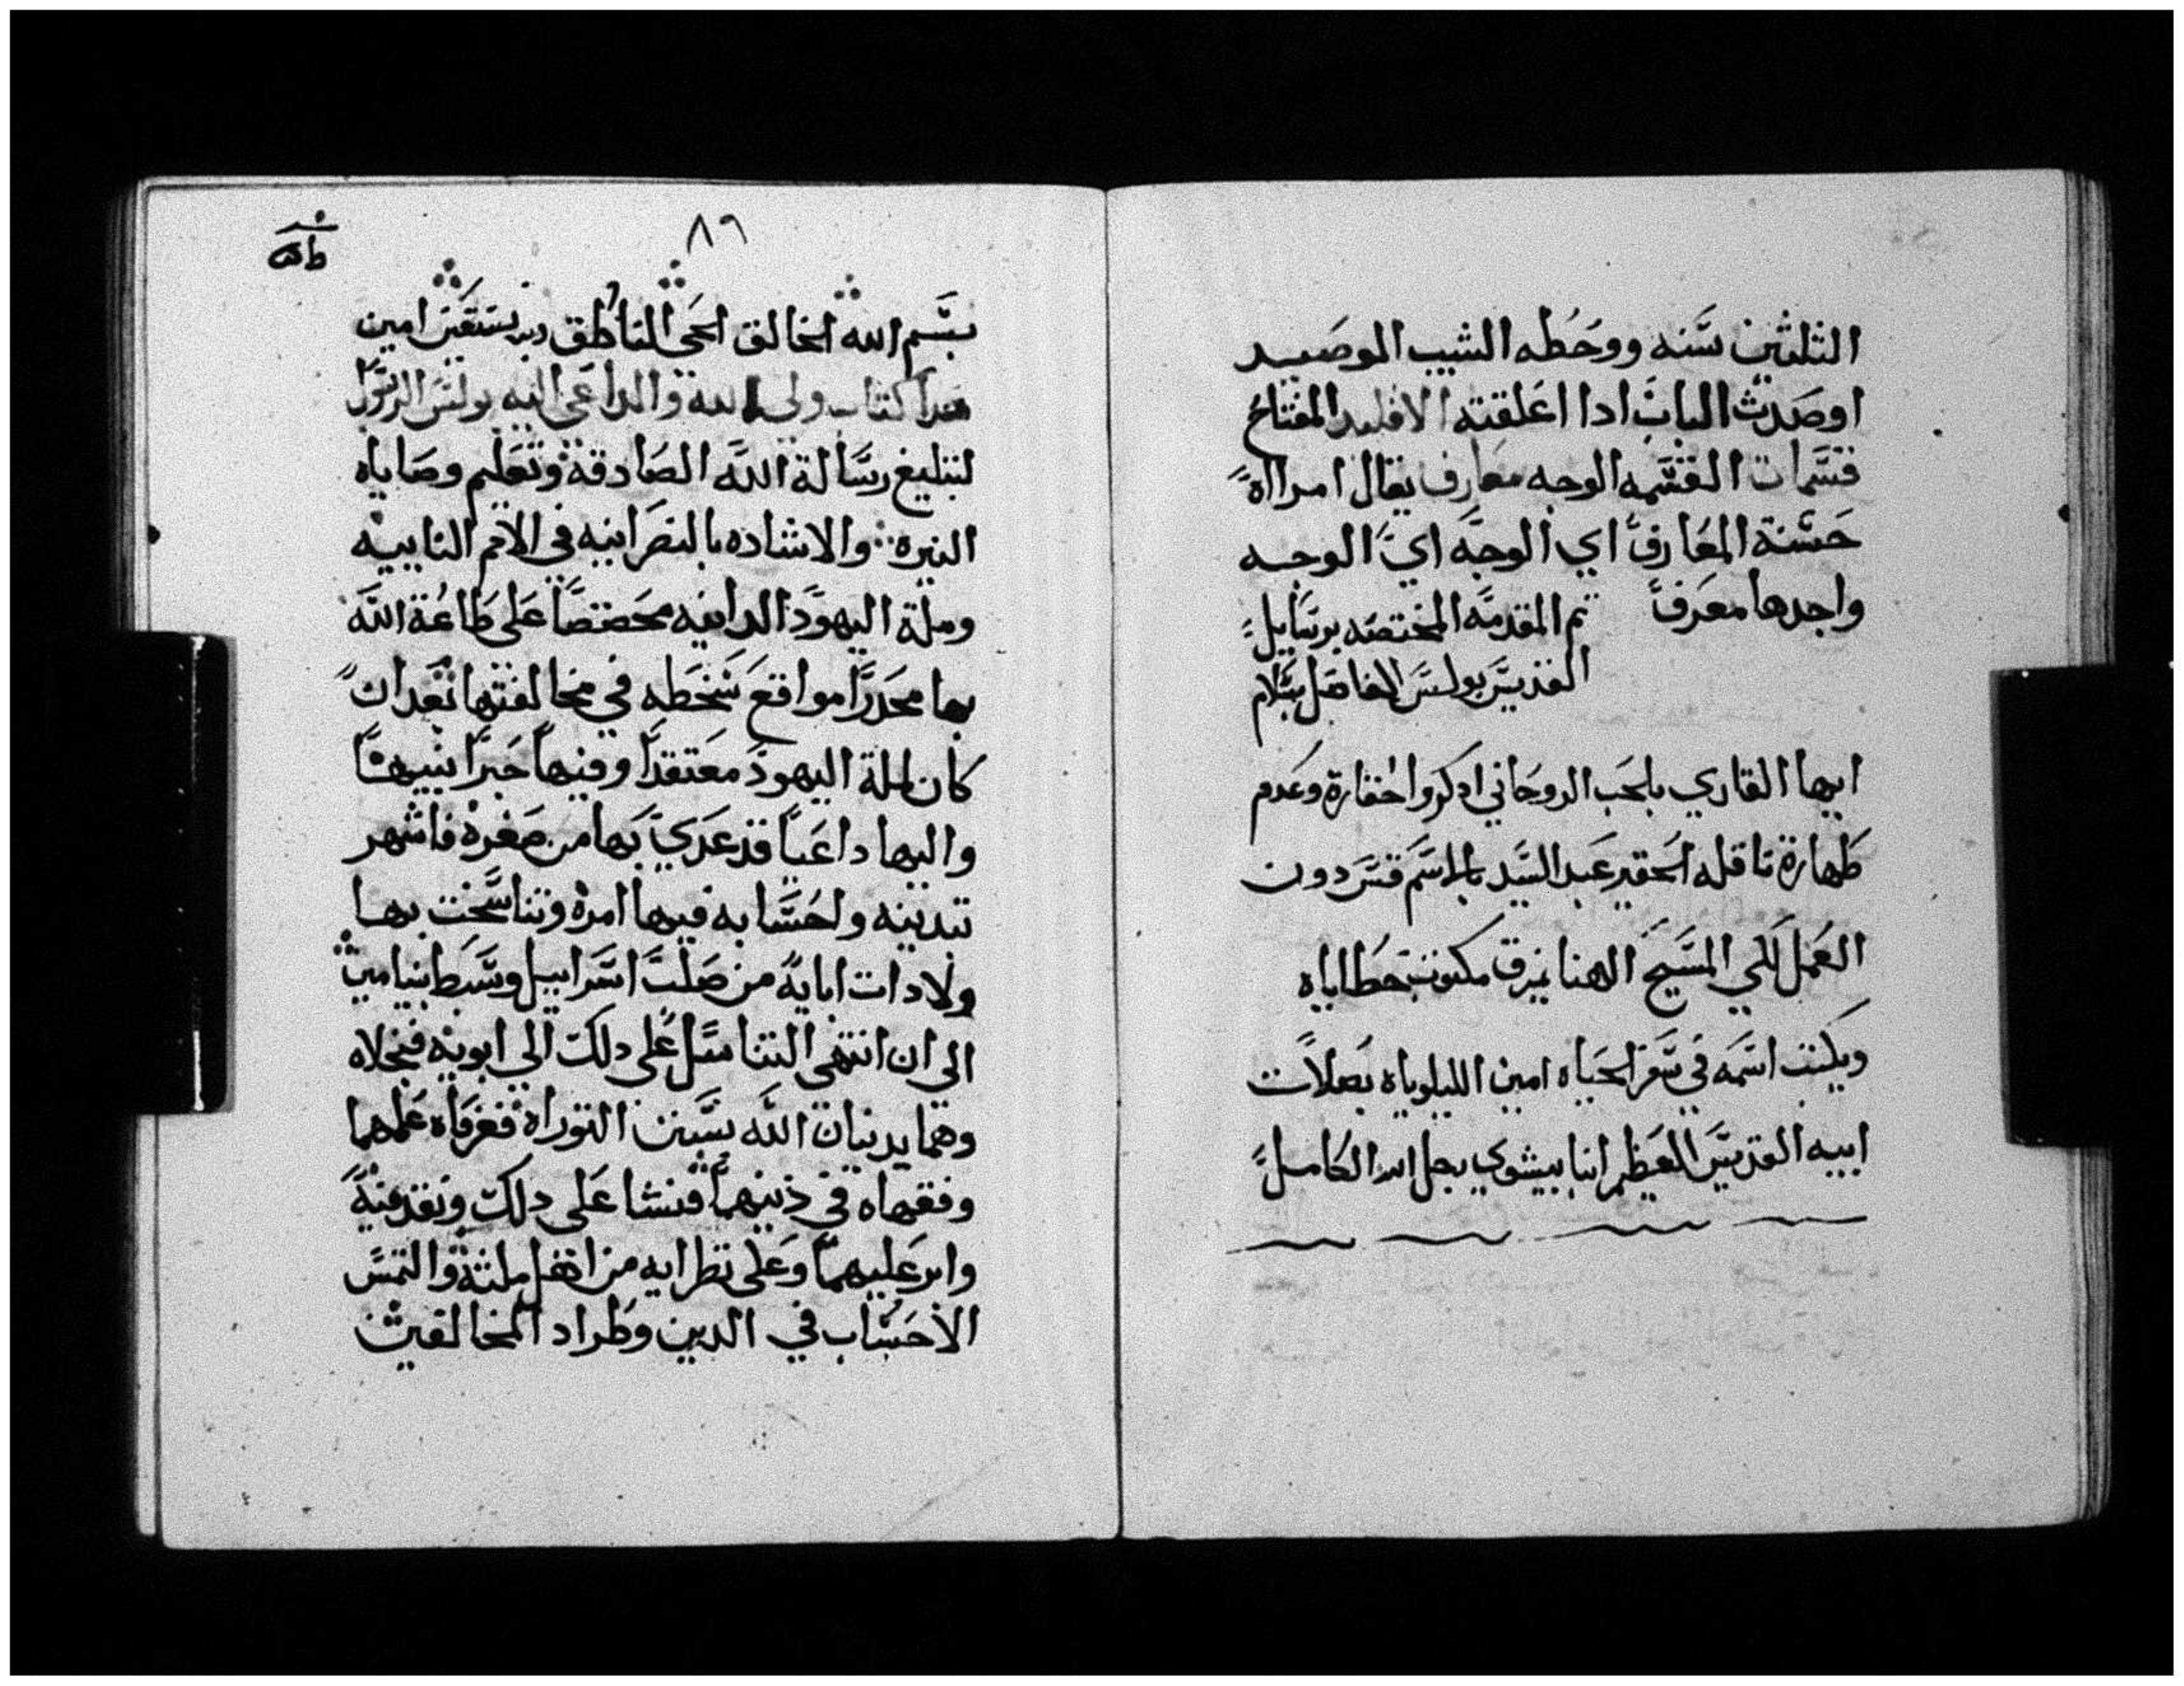 الثلثين سنه ووخطه الشيب الموصيد
اوصدت الباب ادا اغلقته الاقليد المفتاح
قسمات القسمه الوجه معارف يقال امرااة
حسنة المعارف اي الوجه اي الوجه
واحدها معرف تم المقدمه المختصه برسايل
القديس بولس الفاضل بسلام
ايها القاري بالحب الروحاني ادكر واحقارة وعدم
طهارة ناقله الحقير عبد السيد بالاسم قس دون
العمل لكي المسيح الاهنا يمزق مكتوب خطاياه
ويكتب اسمه في سفر الحياه امين الليلوياه بصلات
ابيه القديس العظيم انبا بيشوي رجل الله الكامل
٨٩
بسم الله الخالق الحي الناطق وبه نستعين امين
هدا كتاب ولي الله والداعي اليه بولس الرسول
لتبليغ رسالة الله الصادقة وتعليم وصاياه
النيره والاشاده بالنصرانيه في الامم النابيه
وملة اليهود الدانيه محضضا على طاعة الله
بها محدرا مواقع سخطه في مخالفتها بعد ان
كان لملة اليهود معتقدا وفيها حبرا نبيها
واليها داعيا قد غدي بها من صغره فاشهر
تبدينه واحسابه فيها امره وتناسخت بها
ولادات ابايه من صلب اسراييل وسبط بنيامين
الى ان انتهي التناسل على دلك الي ابويه فنجلاه
وهما يدينان الله بسنن التوراه فعرفاه علمهما
وفقهاه في دينهما فنشا على دلك وتقدم فيه
وابر عليهما وعلى نظرايه من اهل ملته والتمس
الاحساب في الدين وطراد المخالفين